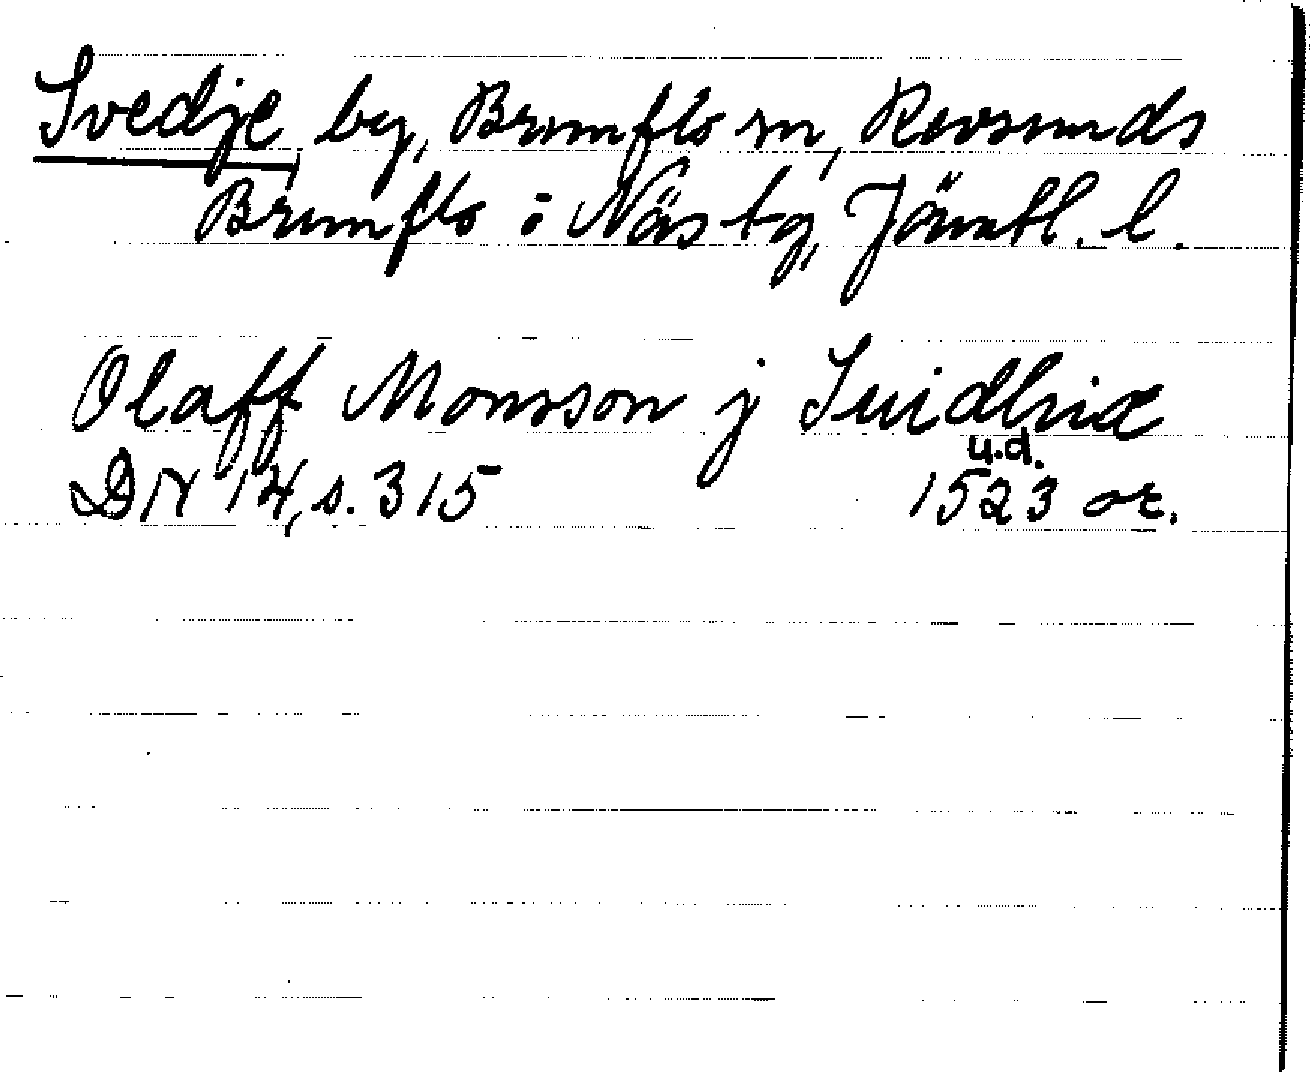 Svedje, by, Brunflo sn, Revsunds
Brunflo o Näs tg, Jämtl. l.
Olaff Monsson j Suidhiæ
u.d.
DN 14, s. 315 1523 or.